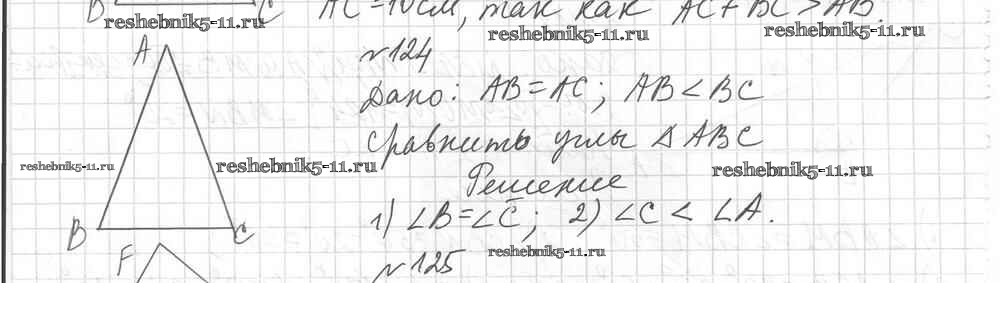 B C AC = 10 см, так как AC + BC > AB.
reshebnik5-11.ru reshebnik5-11.ru reshebnik5-11.ru
A №124
Дано: AB = AC; AB < BC
сравнить углы Δ ABC
reshebnik5-11.ru reshebnik5-11.ru reshebnik5-11.ru
Решение
1) ∠B = ∠C; 2) ∠C < ∠A.
B C
F №125 reshebnik5-11.ru